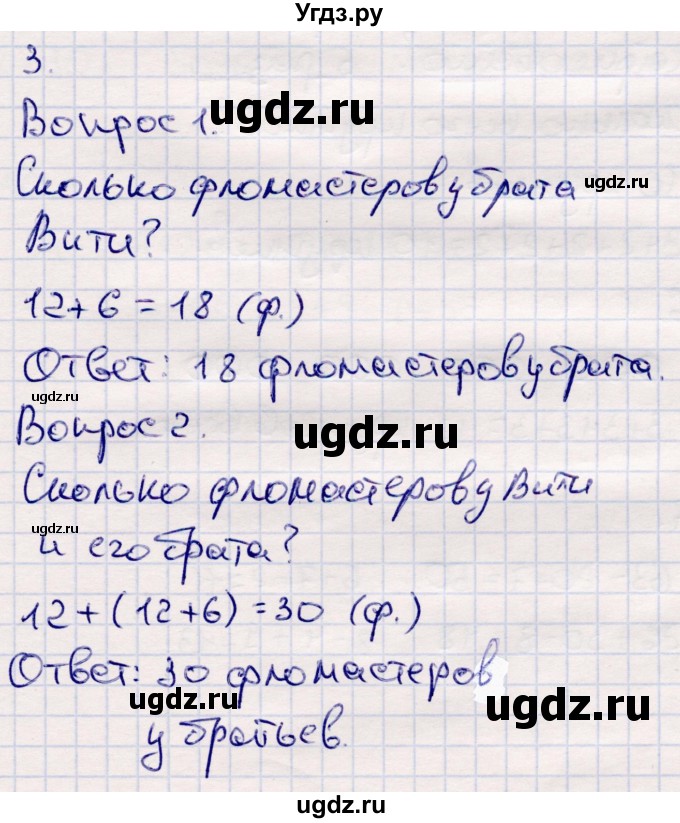 Угдз.ру
3.
Вопрос 1.
ugdz.ru
Сколько фломастеров у брата
ugdz.ru
Вити?
12+6=18 (ф.)
Ответ: 18 фломастеров у брата.
ugdz.ru
Вопрос 2.
ugdz.ru
Сколько фломастеров у Вити
ugdz.ru
и его брата?
12+(12+6)=30 (ф.)
Ответ: 30 фломастеров
ugdz.ru
ugdz.ru
у братьев.
ugdz.ru